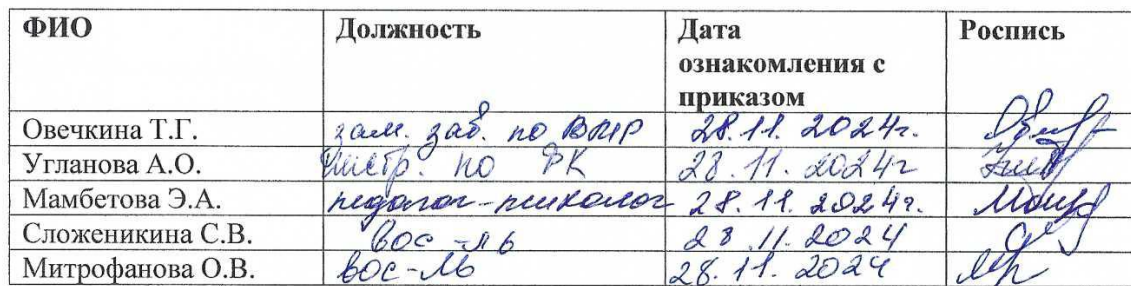 ФИО Должность Дата ознакомления с приказом Роспись
Овечкина Т.Г. зам. зав. по ВМР 28.11.2024г.
Угланова А.О. инстр. по ФК 28.11.2024г
Мамбетова Э.А. педагог-психолог 28.11.2024г.
Сложеникина С.В. вос-ль 28.11.2024
Митрофанова О.В. вос-ль 28.11.2024